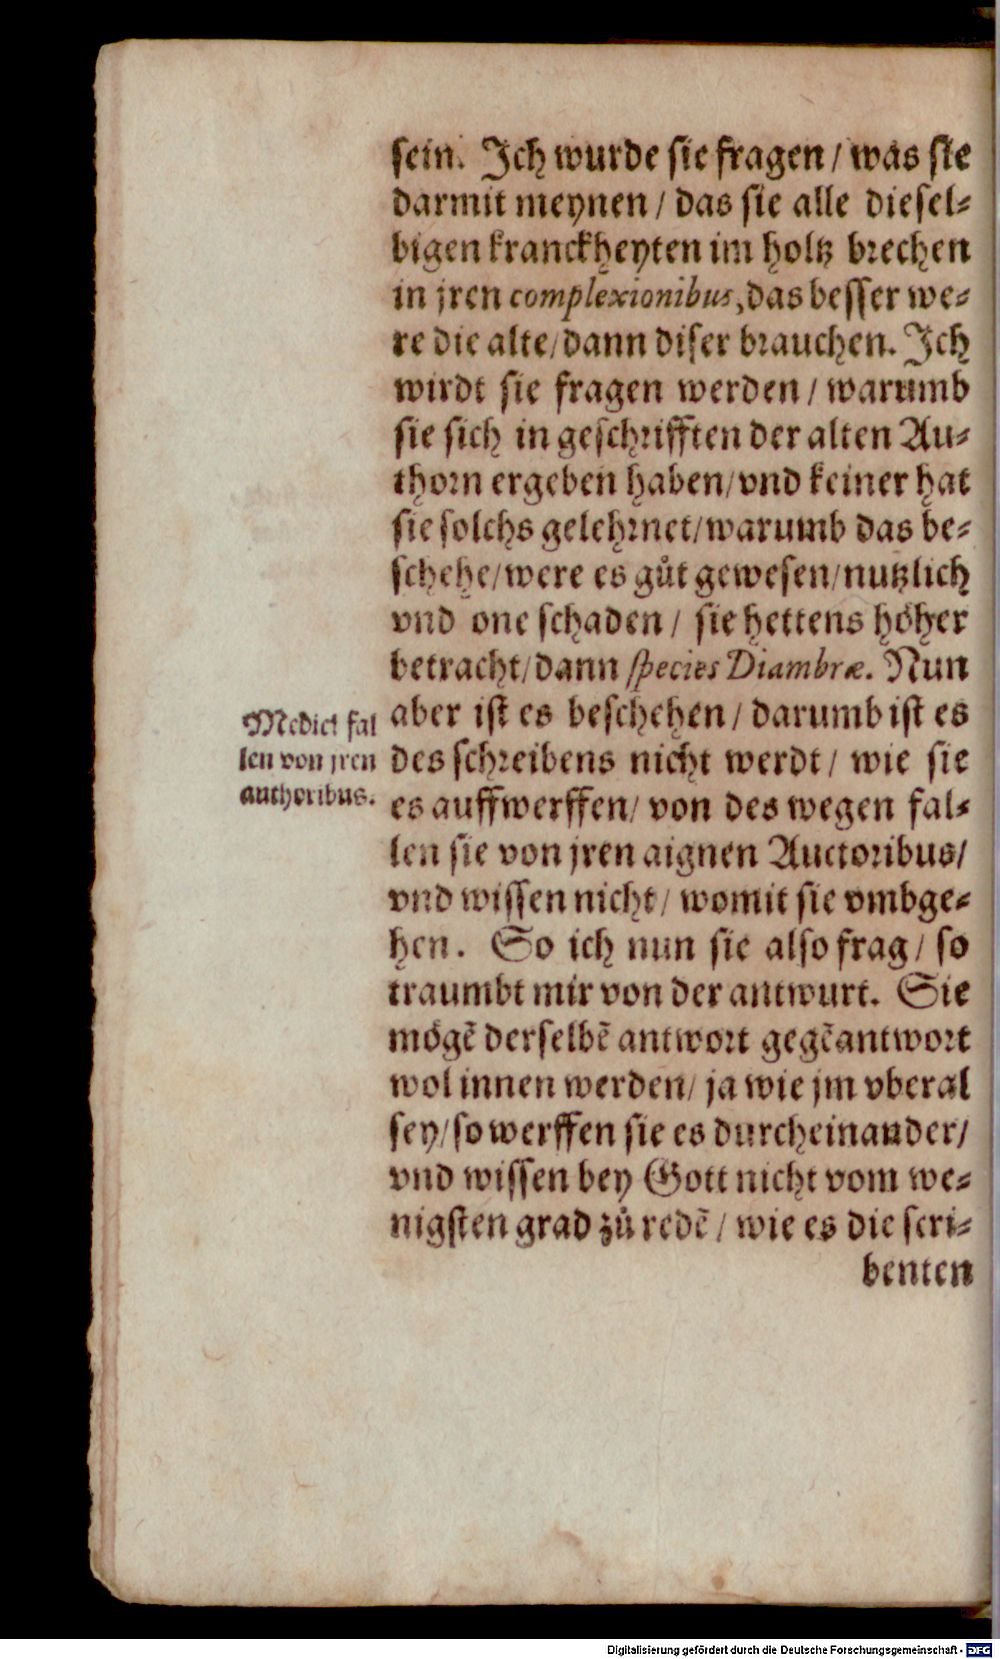 sein. Ich wurde sie fragen / was sie
darmit meynen / das sie alle diesel-
bigen kranckheyten im holtz brechen
in jren complexionibus, das besser we-
re die alte / dann diser brauchen. Ich
wirdt sie fragen werden / warumb
sie sich in geschrifften der alten Au-
thorn ergeben haben / vnd keiner hat
sie solchs gelehrnet / warumb das be-
schehe / were es gůt gewesen / nutzlich
vnd one schaden / sie hettens höher
betracht / dann species Diambræ. Nun
aber ist es beschehen / darumb ist es
des schreibens nicht werdt / wie sie
es auffwerffen / von des wegen fal-
len sie von jren aignen Auctoribus /
vnd wissen nicht / womit sie vmbge-
hen. So ich nun sie also frag / so
traumbt mir von der antwurt. Sie
mögẽ derselbẽ antwort gegẽantwort
wol innen werden / ja wie jm vberal
sey / so werffen sie es durcheinander /
vnd wissen bey Gott nicht vom we-
nigsten grad zů redẽ / wie es die scri-
benten
Medici fal
len von jren
authoribus.
Digitalisierung gefördert durch die Deutsche Forschungsgemeinschaft - DFG